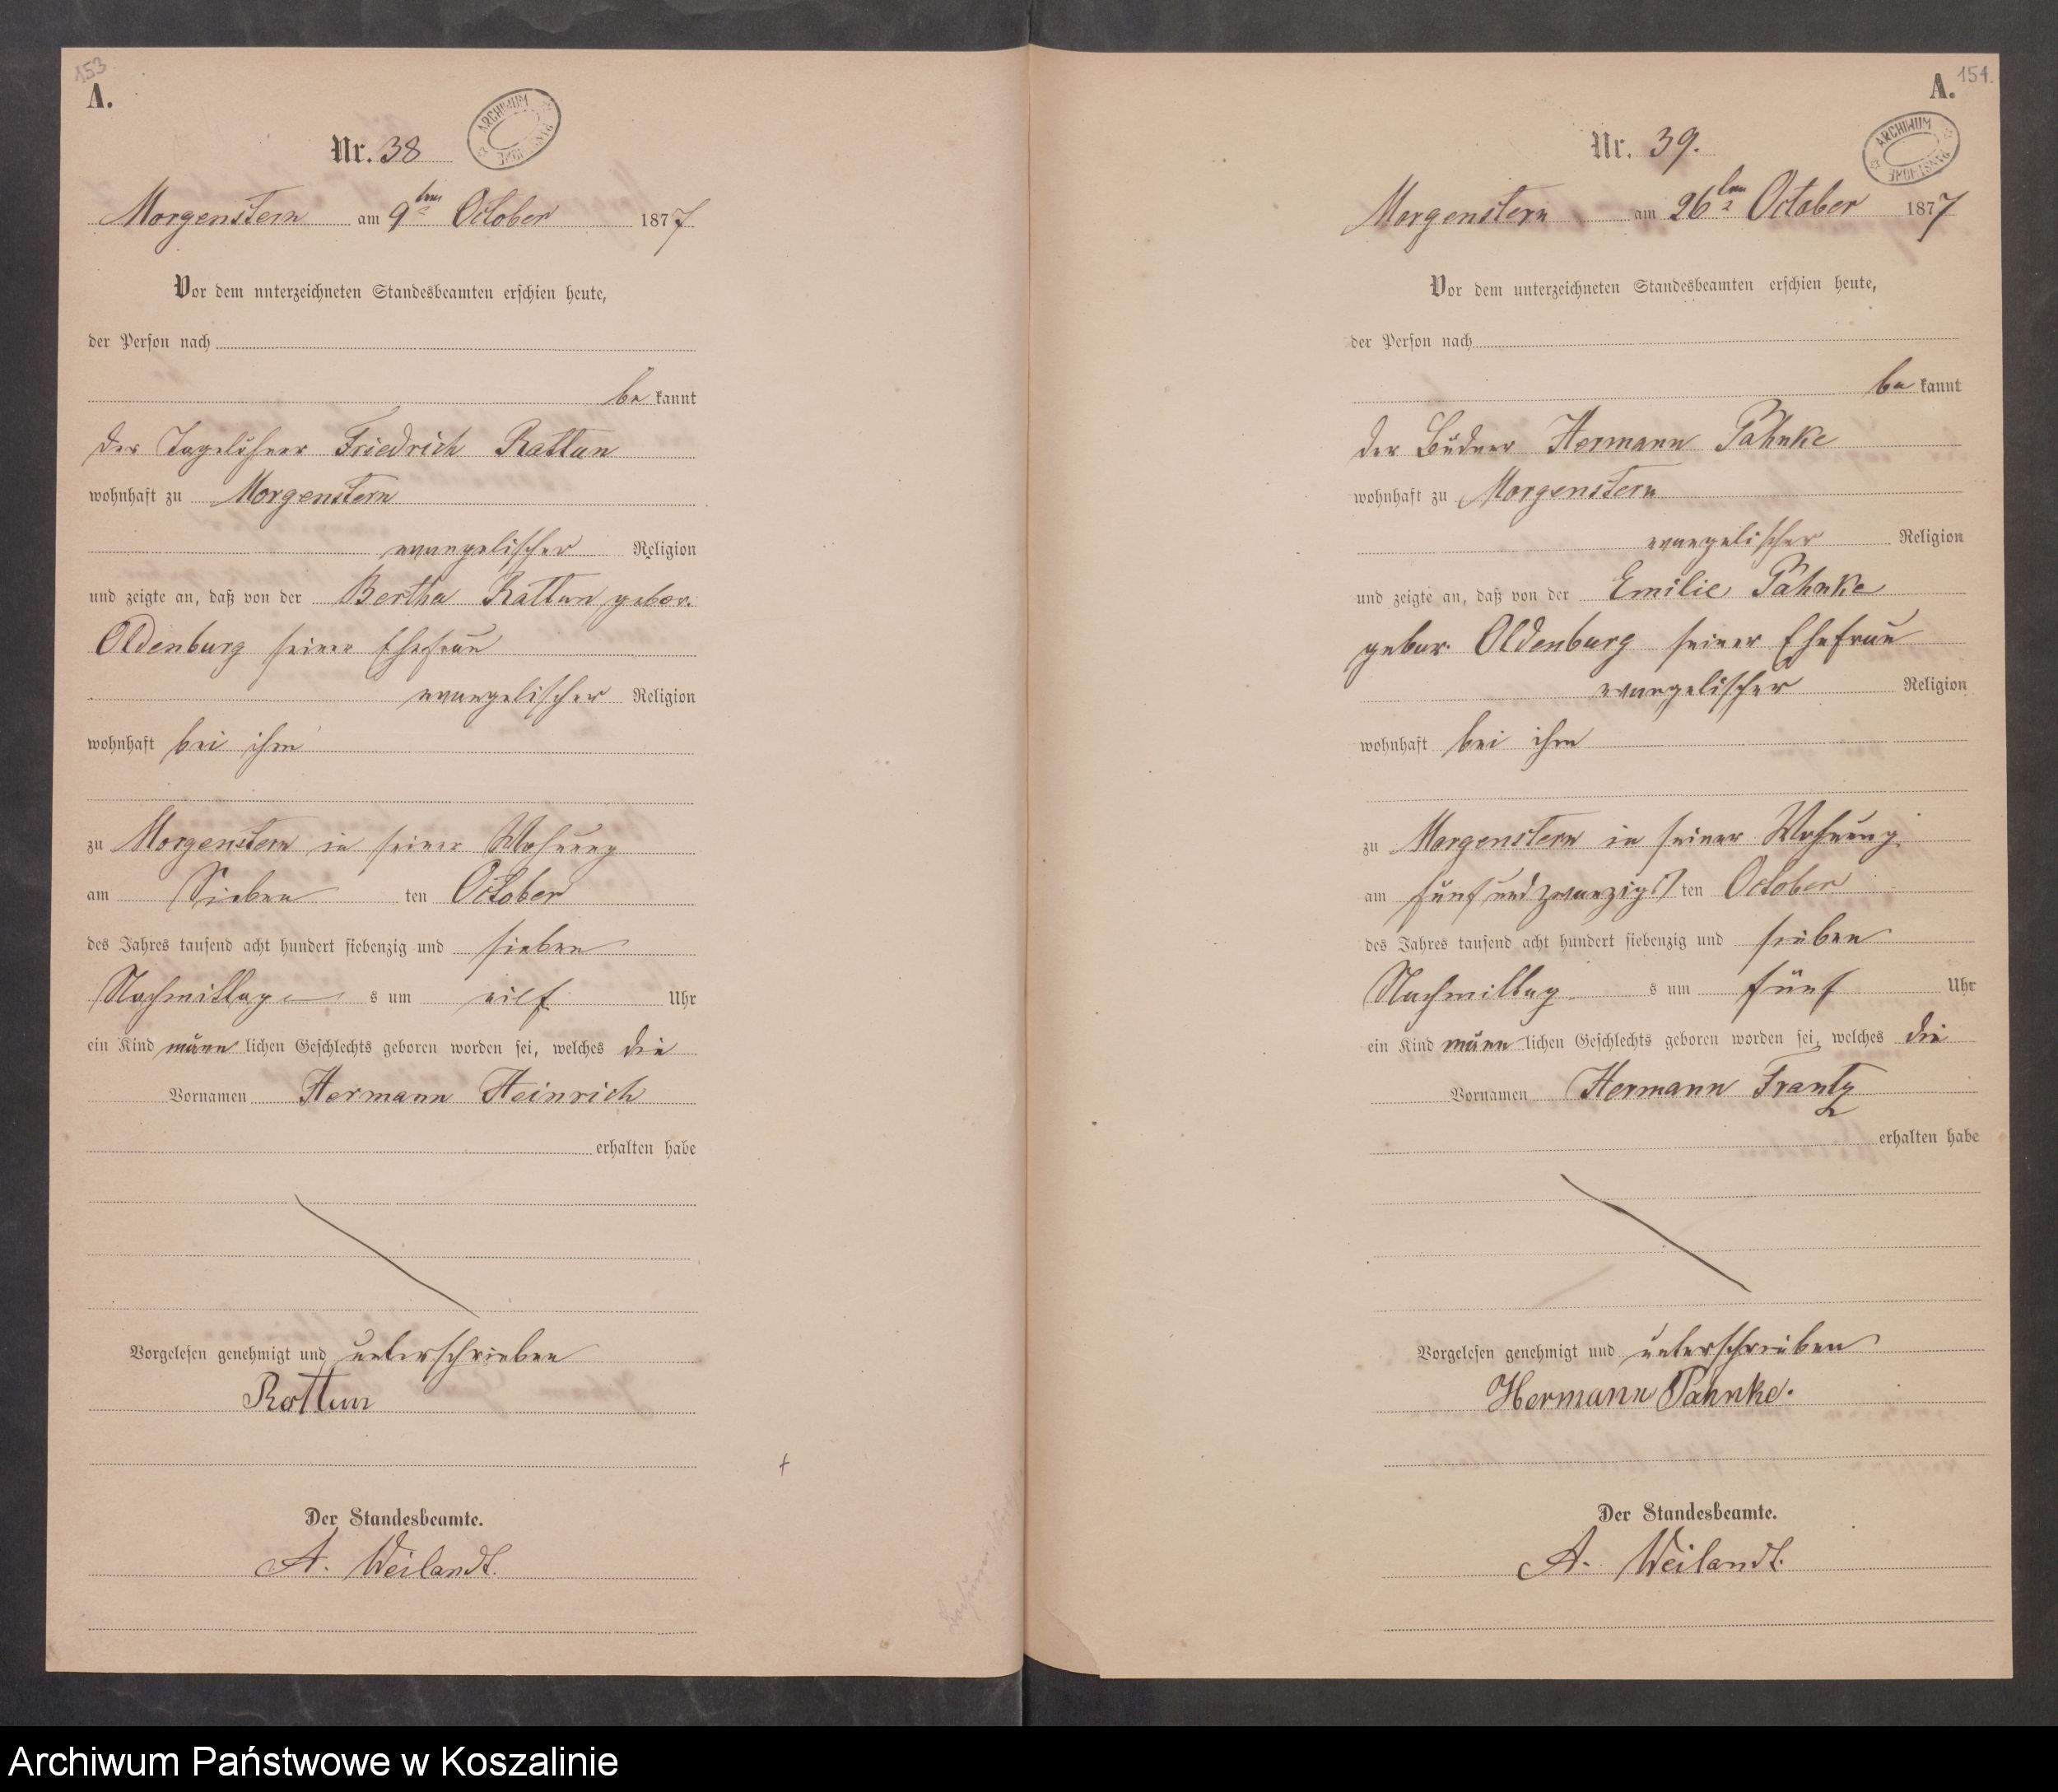 153
A.
ARCHIWUM
Nr. 38
Morgenstern am 9ten October 1877
Vor dem unterzeichneten Standesbeamten erschien heute,
der Person nach
be kannt
der Tagelöhner Friedrich Rattun
wohnhaft zu Morgenstern
evangelischer Religion
und zeigte an, daß von der Bertha Rattun gebor.
Oldenburg seiner Ehefrau
evangelischer Religion
wohnhaft bei ihm
zu Morgenstern in seiner Wohnung
am Sieben ten October
des Jahres tausend acht hundert siebenzig und sieben
Nachmittag s um eilf Uhr
ein Kind männ lichen Geschlechts geboren worden sei, welches die
Vornamen Hermann Heinrich
erhalten habe
Vorgelesen genehmigt und unterschrieben
Rattun
Der Standesbeamte.
A. Weilandt.
154.
A.
ARCHIWUM
Nr. 39.
Morgenstern am 26ten October 1877
Vor dem unterzeichneten Standesbeamten erschien heute,
der Person nach
be kannt
der Büdner Hermann Pahnke
wohnhaft zu Morgenstern
evangelischer Religion
und zeigte an, daß von der Emilie Pahnke
gebor. Oldenburg seiner Ehefrau
evangelischer Religion
wohnhaft bei ihm
zu Morgenstern in seiner Wohnung
am fünf und zwanzigs ten October
des Jahres tausend acht hundert siebenzig und sieben
Nachmittag s um fünf Uhr
ein Kind männ lichen Geschlechts geboren worden sei, welches die
Vornamen Hermann Frantz
erhalten habe
Vorgelesen genehmigt und unterschrieben
Hermann Pahnke.
Der Standesbeamte.
A. Weilandt.
Archiwum Państwowe w Koszalinie